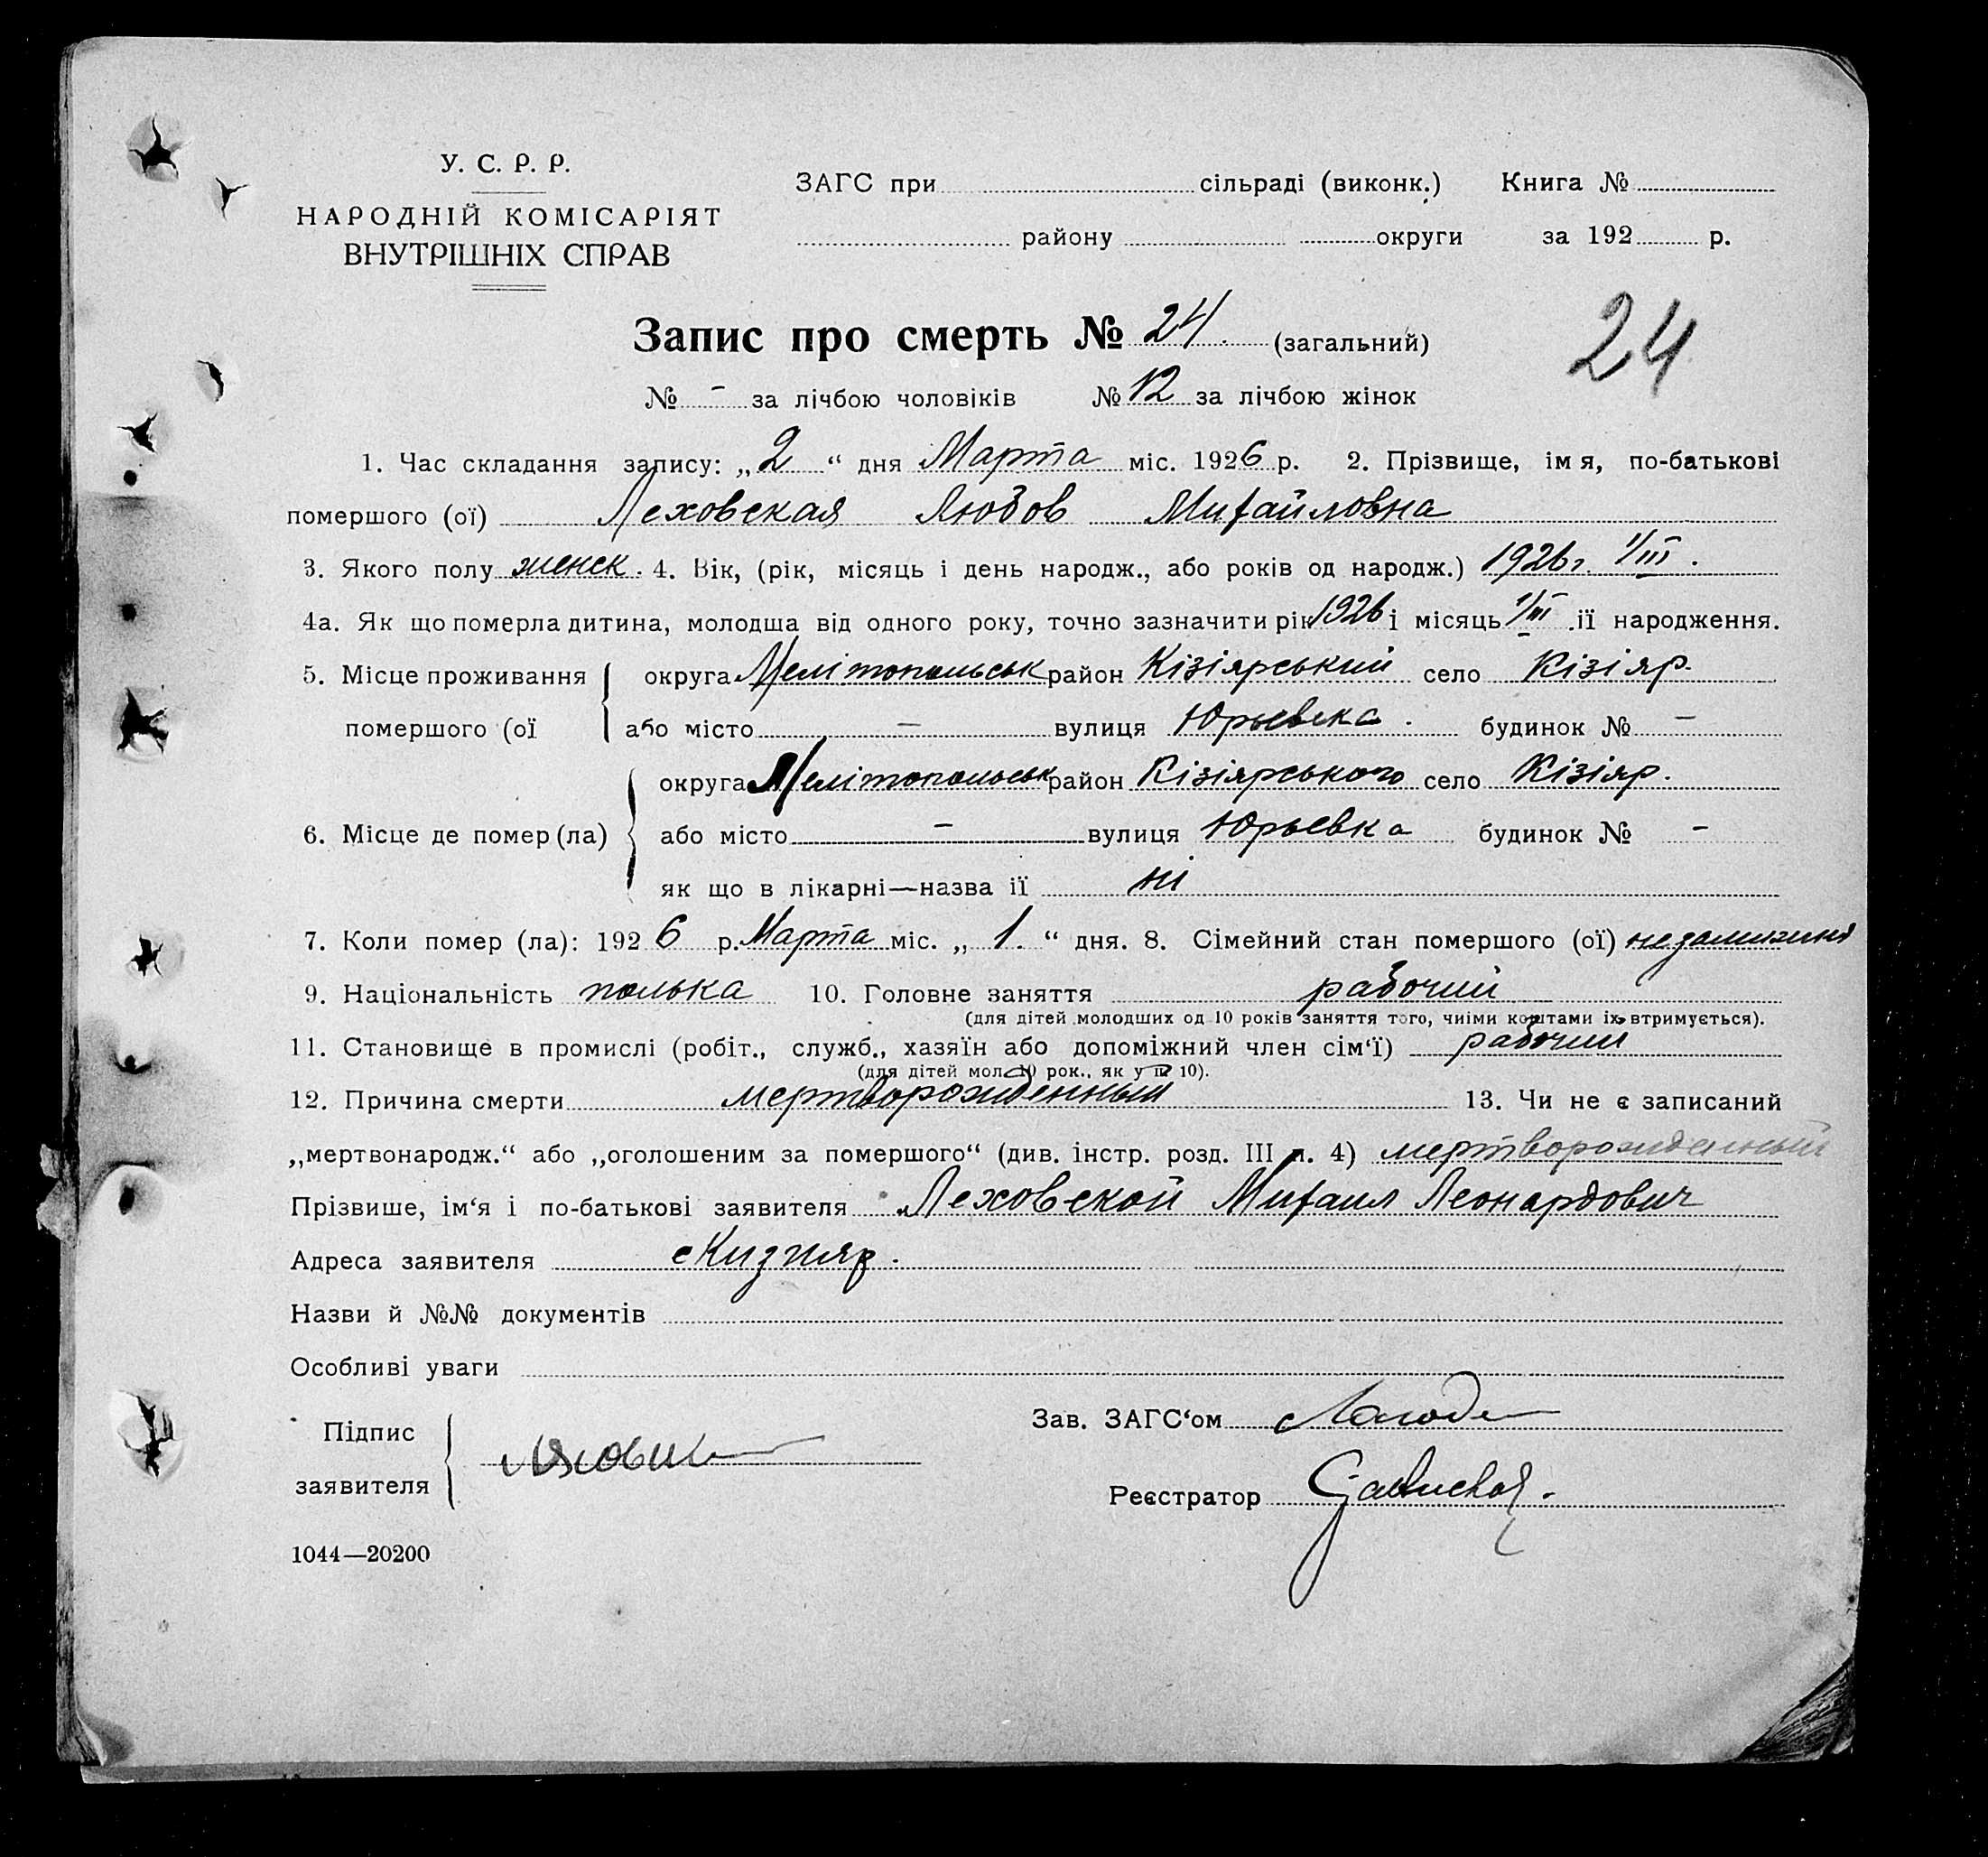 У. С. Р. Р.
НАРОДНІЙ КОМІСАРІЯТ
ВНУТРІШНІХ СПРАВ
ЗАГС при сільраді (виконк.) Книга №
району округи за 192 р.
Запис про смерть № 24. (загальний)
24
№ - за лічбою чоловіків № 12 за лічбою жінок
1. Час складання запису: „2“ дня Марта міс. 1926 р. 2. Прізвище, імя, по-батькові
помершого (ої) Леховская Любов Михайловна
3. Якого полу женск. 4. Вік, (рік, місяць і день народж., або років од народж.) 1926 г. 1/III.
4а. Як що померла дитина, молодша від одного року, точно зазначити рік 1926 і місяць 1/III .ії народження.
5. Місце проживання округа Мелітопольськ район Кізіярський село Кізіяр.
помершого (ої або місто - вулиця Юрьевка. будинок № -
округа Мелітопольськ район Кізіярського село Кізіяр.
6. Місце де помер (ла) або місто - вулиця Юрьевка будинок № -
як що в лікарні—назва ії ні
7. Коли помер (ла): 1926 р. Марта міс. „1.“ дня. 8. Сімейний стан помершого (ої)
9. Національність полька 10. Головне заняття рабочий
(для дітей молодших од 10 років заняття того, чиїми коштами їх втримується).
11. Становище в промислі (робіт., служб., хазяїн або допоміжний член сім‘ї) рабочий
(для дітей мол. 10 рок., як у п. 10).
12. Причина смерти мертворожденный 13. Чи не є записаний
„мертвонародж.“ або „оголошеним за помершого“ (див. інстр. розд. III п. 4) мертворожденный
Прізвише, ім‘я і по-батькові заявителя Леховской Михаил Леонардович
Адреса заявителя с Кизияр.
Назви й №№ документів
Особливі уваги
Підпис
заявителя
Зав. ЗАГС‘ом
Реєстратор
1044—20200